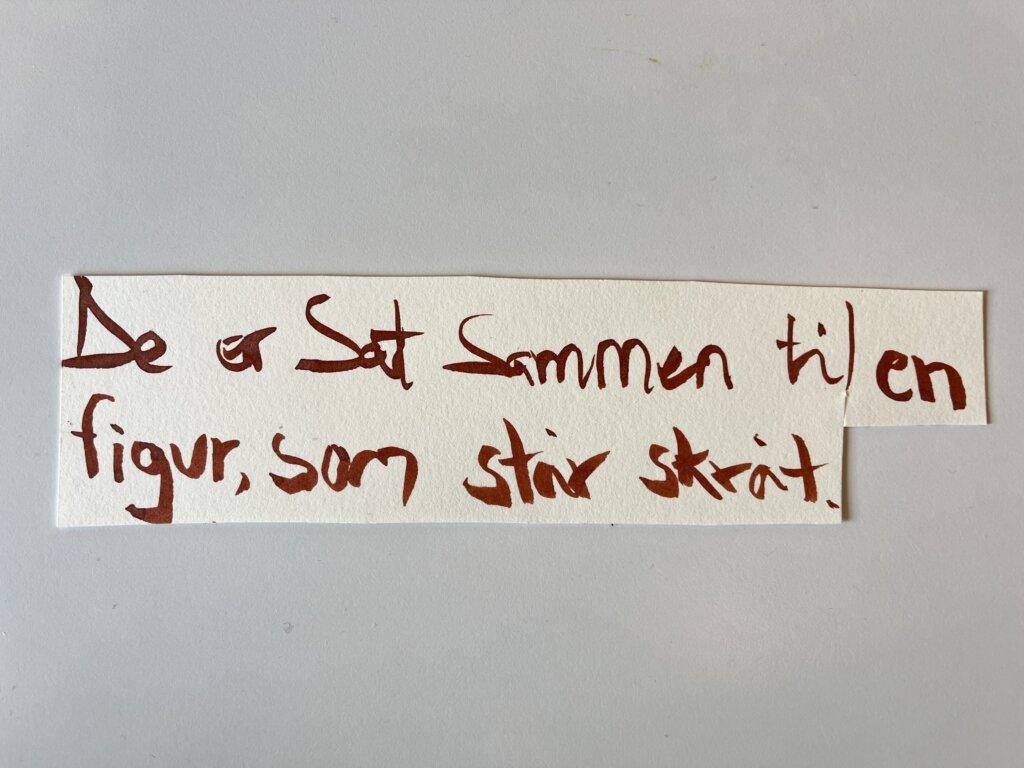 De er sat sammen til en
figur, som står skråt.